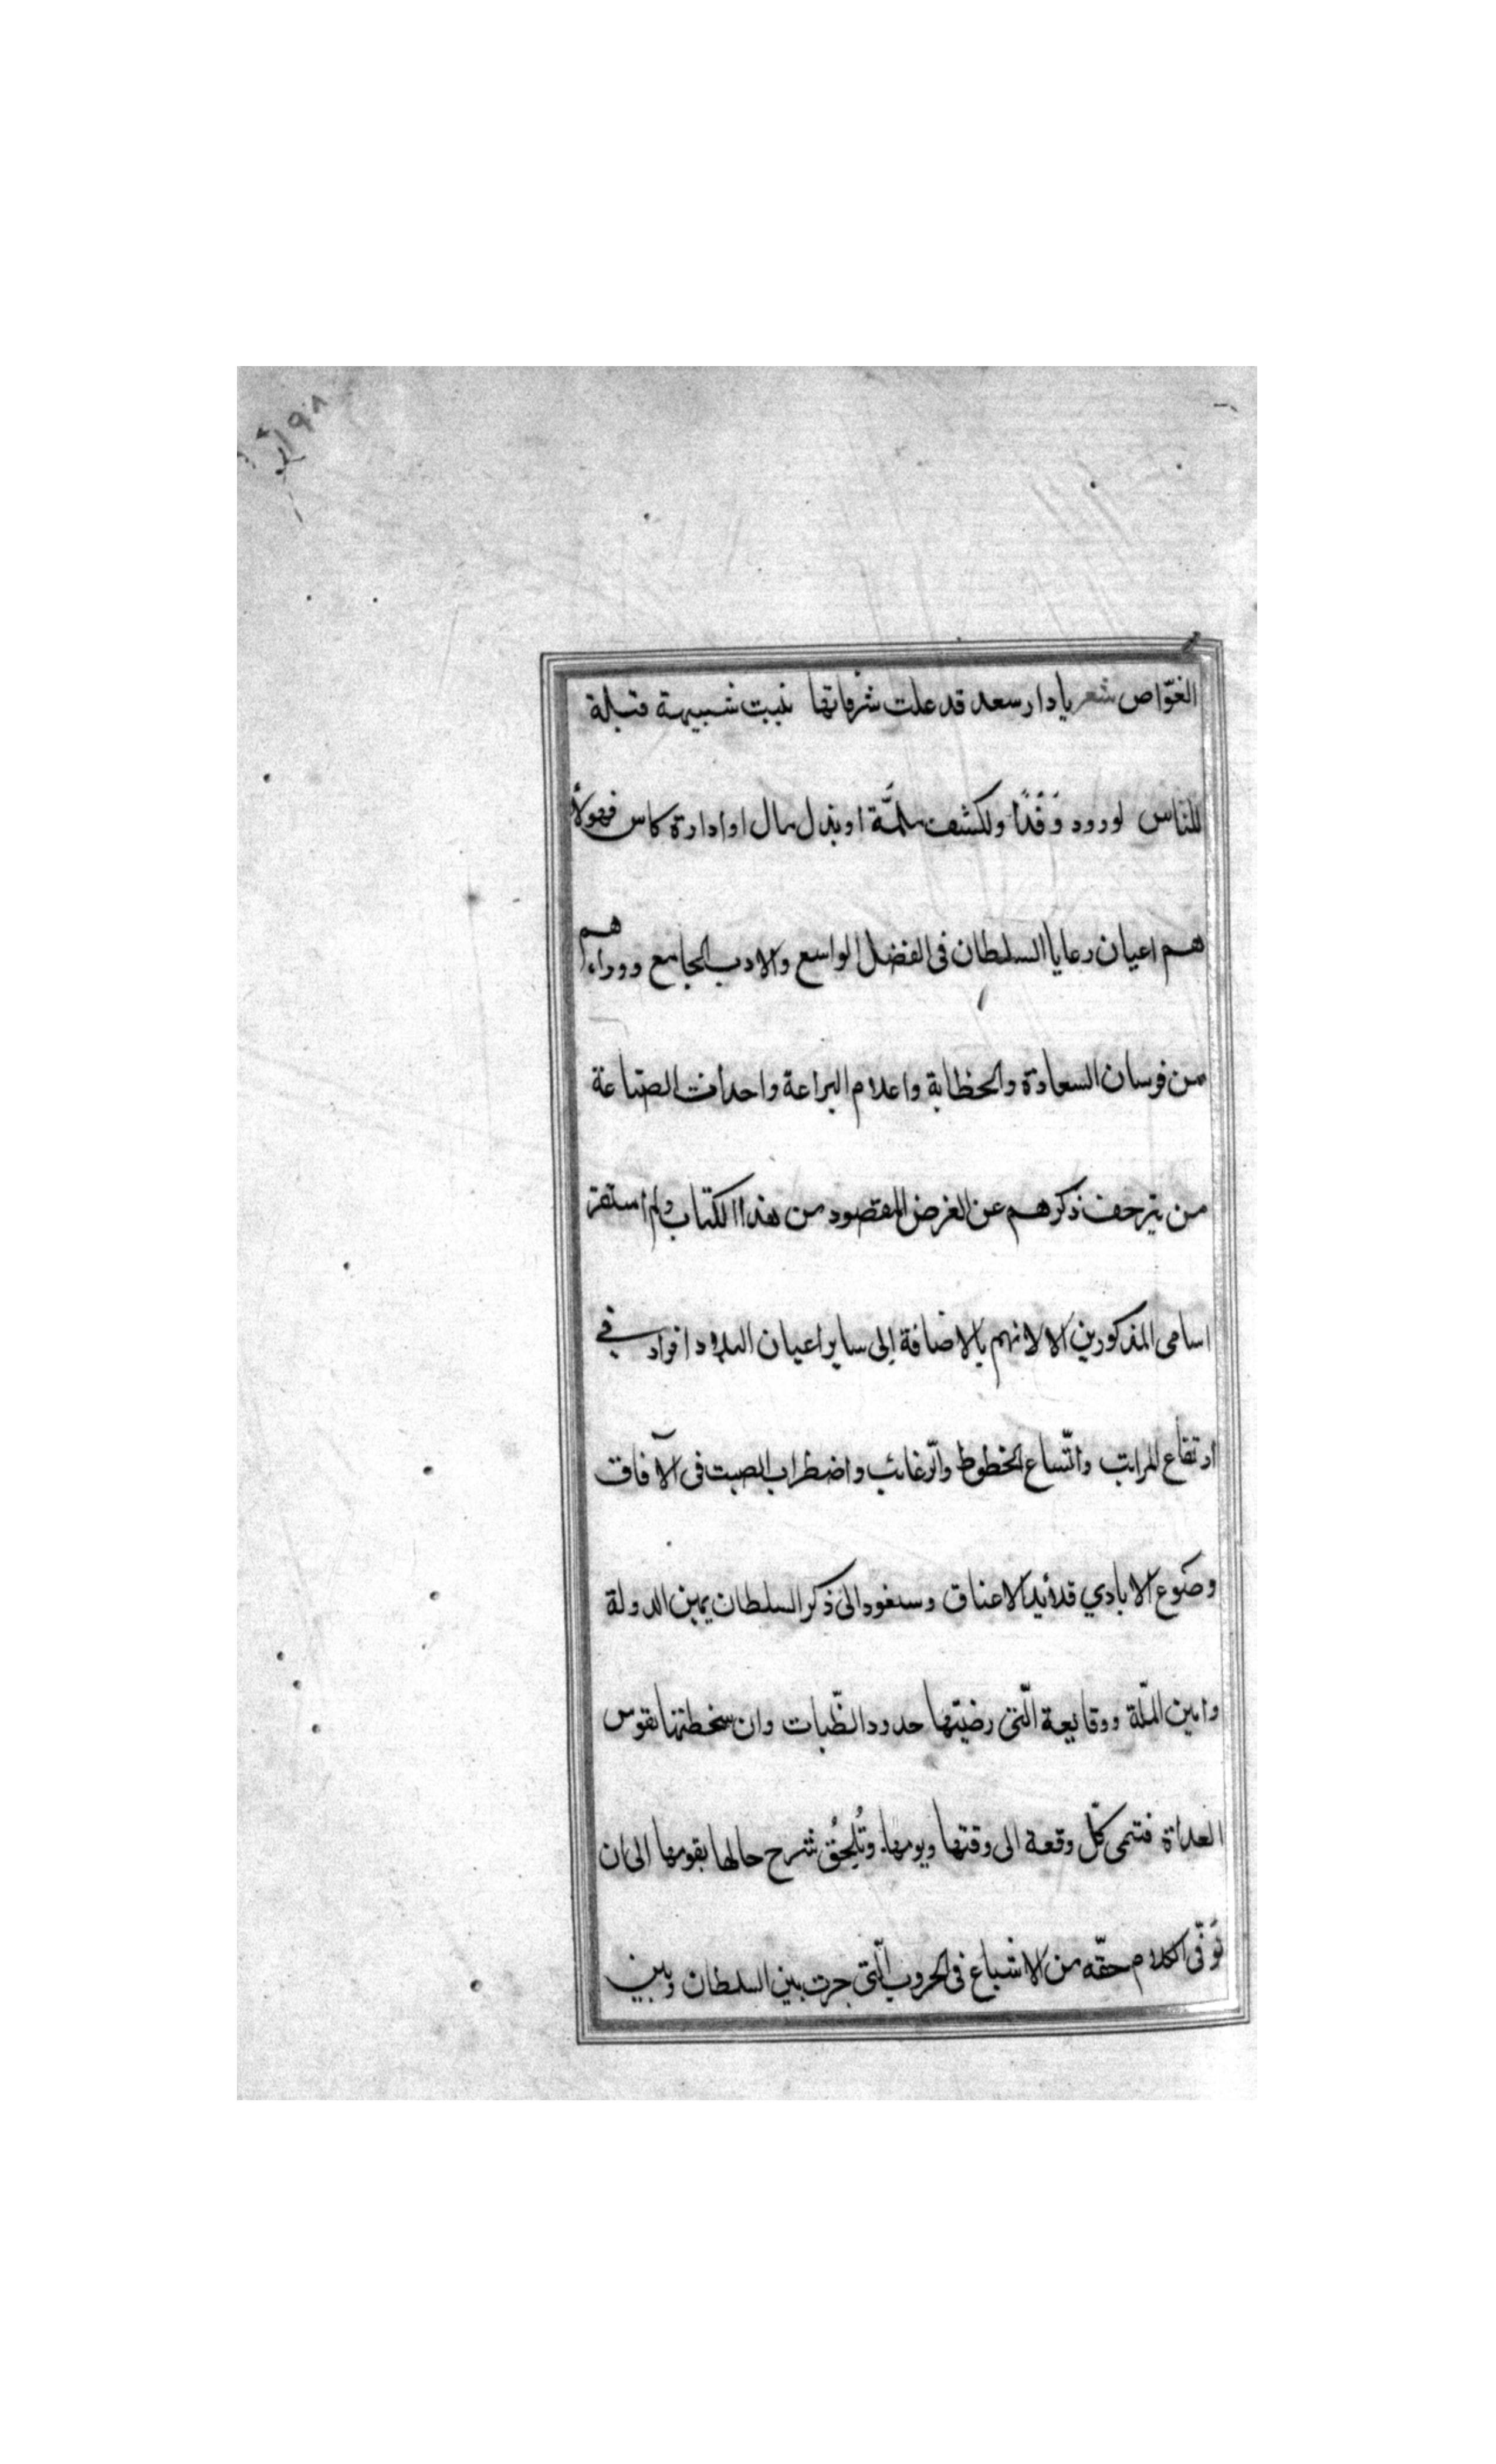 الغوّاص شعر يا دار سعد قد علت شرفاتها بنيت شبيهة قبلة
للناس لورود وَفْدًا ولكشف ملمَّة او بذل مال او ادارة كاس فهولأ
هم اعيان رعايا السلطان فى الفضل الواسع والادب الجامع ووراءهم
من فرسان السعادة والخطابة واعلام البراعة واحداث الصناعة
من يتزحف ذكرهم عن الغرض المقصود من هذا الكتاب ولم استقز
اسامى المذكورين الا لانهم بالاضافة الى ساير اعيان البلاد افراد في
ارتفاع المراتب واتّساع الخطوط والرّغائب واضطراب الصيت فى الآفاق
وصوع الايادي قلائد الاعناق وسنعود الى ذكر السلطان يمين الدولة
وامين الملّة ووقايعة الّتى رضيتها حدود الظّبات وان سخطتها نفوس
العداة فتمى كلّ وقعة الى وقتها ويومها. وتُلحُق شرح حالها بقومها الى ان
نَوفّى الكلام حقّه من الاشباع فى الحروب الّتى جرت بين السلطان وبين